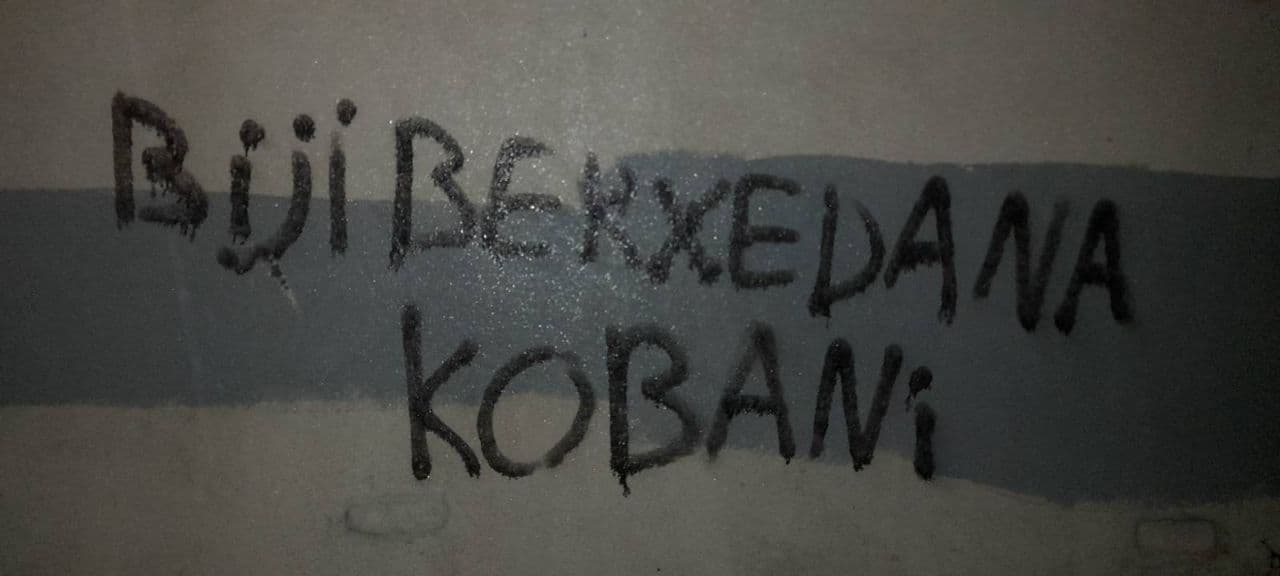 Biji BERXEDANA
KOBANi